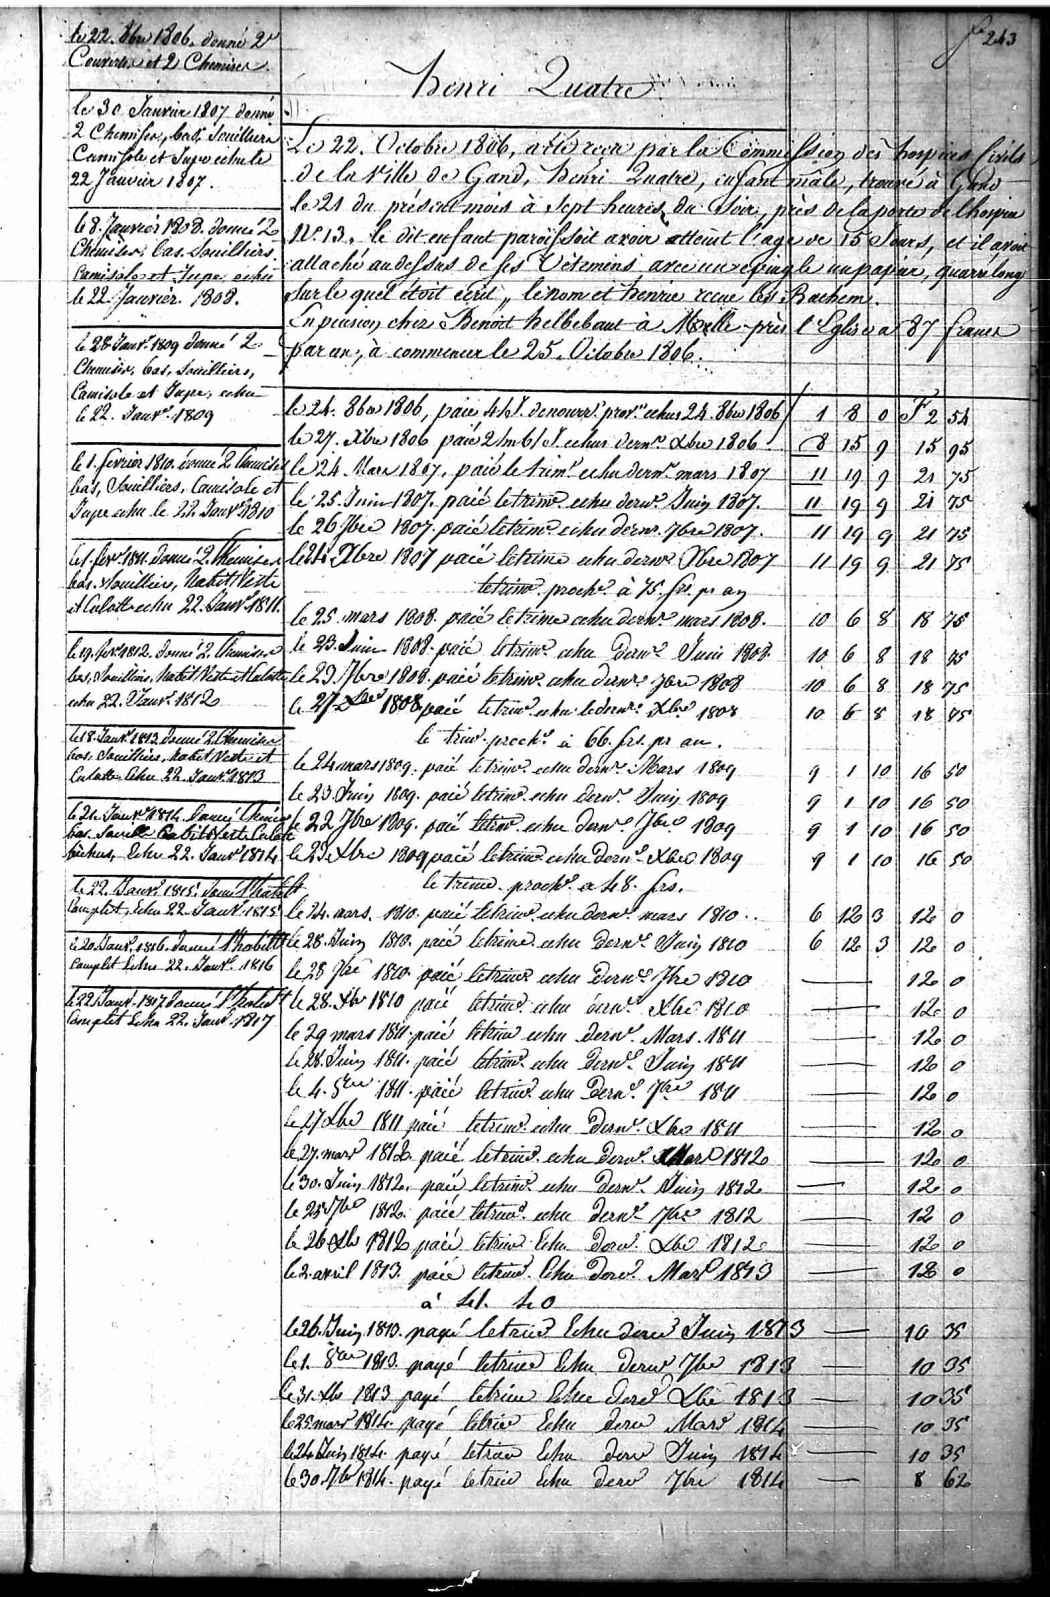 fo 243
Henri Quatre
le 22. 8bre 1806. donné 2
Couvertes et 2 Chemises.
le 30 Janvier 1807 donné
2 Chemises, bas, souilliers
Camisole et Jupe echu le
22 Janvier 1807.
le 8. Janvier 1808. donné 2
Chemises, bas. Souilliers.
Camisole et Jupe echu
le 22. Janvier 1808.
le 28 Janvr. 1809 Donné 2.
Chemises, bas, Souilliers,
Camisole et Jupe, echu
le 22. Janvr. 1809
le 1. fevrier 1810. donné 2 Chemises
bas, Souilliers, Camisole et
Jupe echu le 22 Janvr. 1810
le 1. fevr. 1811. Donné 2. Chemises
bas. Souilliers, Habit Veste
et Culotte echu 22. Janvr. 1811.
le 19. fevr. 1812. Donné 2. Chemises
bas, Souilliers, Habit Veste et Culotte
echu 22. Janvr. 1812
le 18. Janvr. 1813 Donné 2 Chemises
bas, Souilliers, habit Veste et
Culotte Echu 22. Janvr. 1813
le 21. Janvr. 1814 Donné Chemises
bas. Habit Veste Culotte
Echu 22. Janvr. 1814
le 22. Janvr. 1815. Donné l'habilt
Complet, Echu 22. Janvr. 1815
le 20. Janvr. 1816. Donné l'habilt
Complet Echu 22. Janvr. 1816
le 22 Janvr. 1817 Donné l'habilt
Complet Echu 22. Janvr. 1817
Le 22. Octobre 1806, a été recu par la Commission des hospices Civils
de la Ville de Gand, Henri Quatre, enfant mâle, trouvé à Gand
le 21 du présent mois à Sept heures du Soir, près de la porte de l'hospice
No. 13. le dit enfant paroissoit avoir atteint l'age de 15 Jours, et il avoit
attaché au dessus de ses Vêtemens avec un epingle un papier, quarré long
sur le quel étoit ecrit, le nom et henrie
En pension chez Benoit helbebaut à Melle près l'Eglise a 87 francs
par an, à commencer le 25. Octobre 1806.
le 24. 8bre 1806, paié echus 24. 8bre 1806 1 8 0 F 2 54
le 27. Xbre 1806 paié 2 m 6 J. echus dernr. Xbre 1806. 8 15 9 15 95
le 24. Mars 1807. paié le trimr. echu dernr. mars 1807 11 19 9 21 75
le 25. Juin 1807. paié le trimr. echu dernr. Juin 1807. 11 19 9 21 75
le 26 7bre 1807. paié le trimr. echu dernr. 7bre 1807. 11 19 9 21 75
le 24. Xbre 1807 paié le trime echu dernr. Xbre 1807 11 19 9 21 75
le trimr. prochr. à 75. frs. pr an
le 25. mars 1808. paié le trime echu dernr. mars 1808. 10 6 8 18 75
le 23. Juin 1808. paié le trimr. echu dernr. Juin 1808 10 6 8 18 75
le 29. 7bre 1808. paié le trimr. echu dernr. 7bre 1808 10 6 8 18 75
le 27 Xbre 1808 paié le trimr. echu le dernr. Xbre 1808 10 6 8 18 75
le trimr. prochr. à 66. frs. pr an.
le 24 mars 1809. paié le trimr. echu dernr. Mars 1809 9 1 10 16 50
le 23. Juin 1809. paié le trimr. echu dernr. Juin 1809 9 1 10 16 50
le 22 7bre 1809. paié le trimr. echu dernr. 7bre 1809 9 1 10 16 50
le 23 Xbre 1809 paié le trimr. echu dernr. Xbre 1809 9 1 10 16 50
le trime. prochr. a 48. frs.
le 24. mars. 1810. paié le trimr. echu dernr. mars 1810.. 6 12 3 12 0
le 28. Juin 1810. paié le trime echu dernr. Juin 1810 6 12 3 12 0
le 28 7bre 1810. paié le trimr. echu dernr. 7bre 1810 — 12 0
le 28. Xbr 1810 paié le trimr. echu dernr. Xbre 1810 — 12 0
le 29 mars 1811. paié le trim echu dernr. Mars. 1811 — 12 0
le 28. Juin 1811. paié le trimr. echu dernr. Juin 1811 — 12 0
le 4. 1811. paié le trimr. echu Dernr. 7bre 1811 — 12 0
le 17 Xbre 1811 paié le trimr. echu Dernr. Xbre 1811 — 12 0
le 27. mars 1812. paié le trimr. echu Dernr. Mars 1812 — 12 0
le 30. Juin 1812. paié le trimr. echu dernr. Juin 1812 — 12 0
le 25 7bre 1812. paié le trimr. echu dernr. 7bre 1812 — 12 0
le 26 Xbr 1812 paié le trimr Echu dernr. Xbre 1812 — 12 0
le 2. avril 1813. paié le trimr. Echu dernr. Mars 1813 — 12 0
à 41. 40
le 26. Juin 1813. payé le trimr Echu dernr Juin 1813 — 10 35
le 1. 8bre 1813. payé le trimr Echu dernr 7bre 1813 — 10 35
le 31. Xbr 1813 payé le trimr Echu dernr Xbre 1813 — 10 35
le 25 mars 1814. payé le trimr Echu dernr Mars 1814 — 10 35
le 24 Juin 1814. payé le trimr Echu dernr Juin 1814 — 10 35
le 30. 7br 1814. payé le trimr Echu dernr 7bre 1814 — 8 62